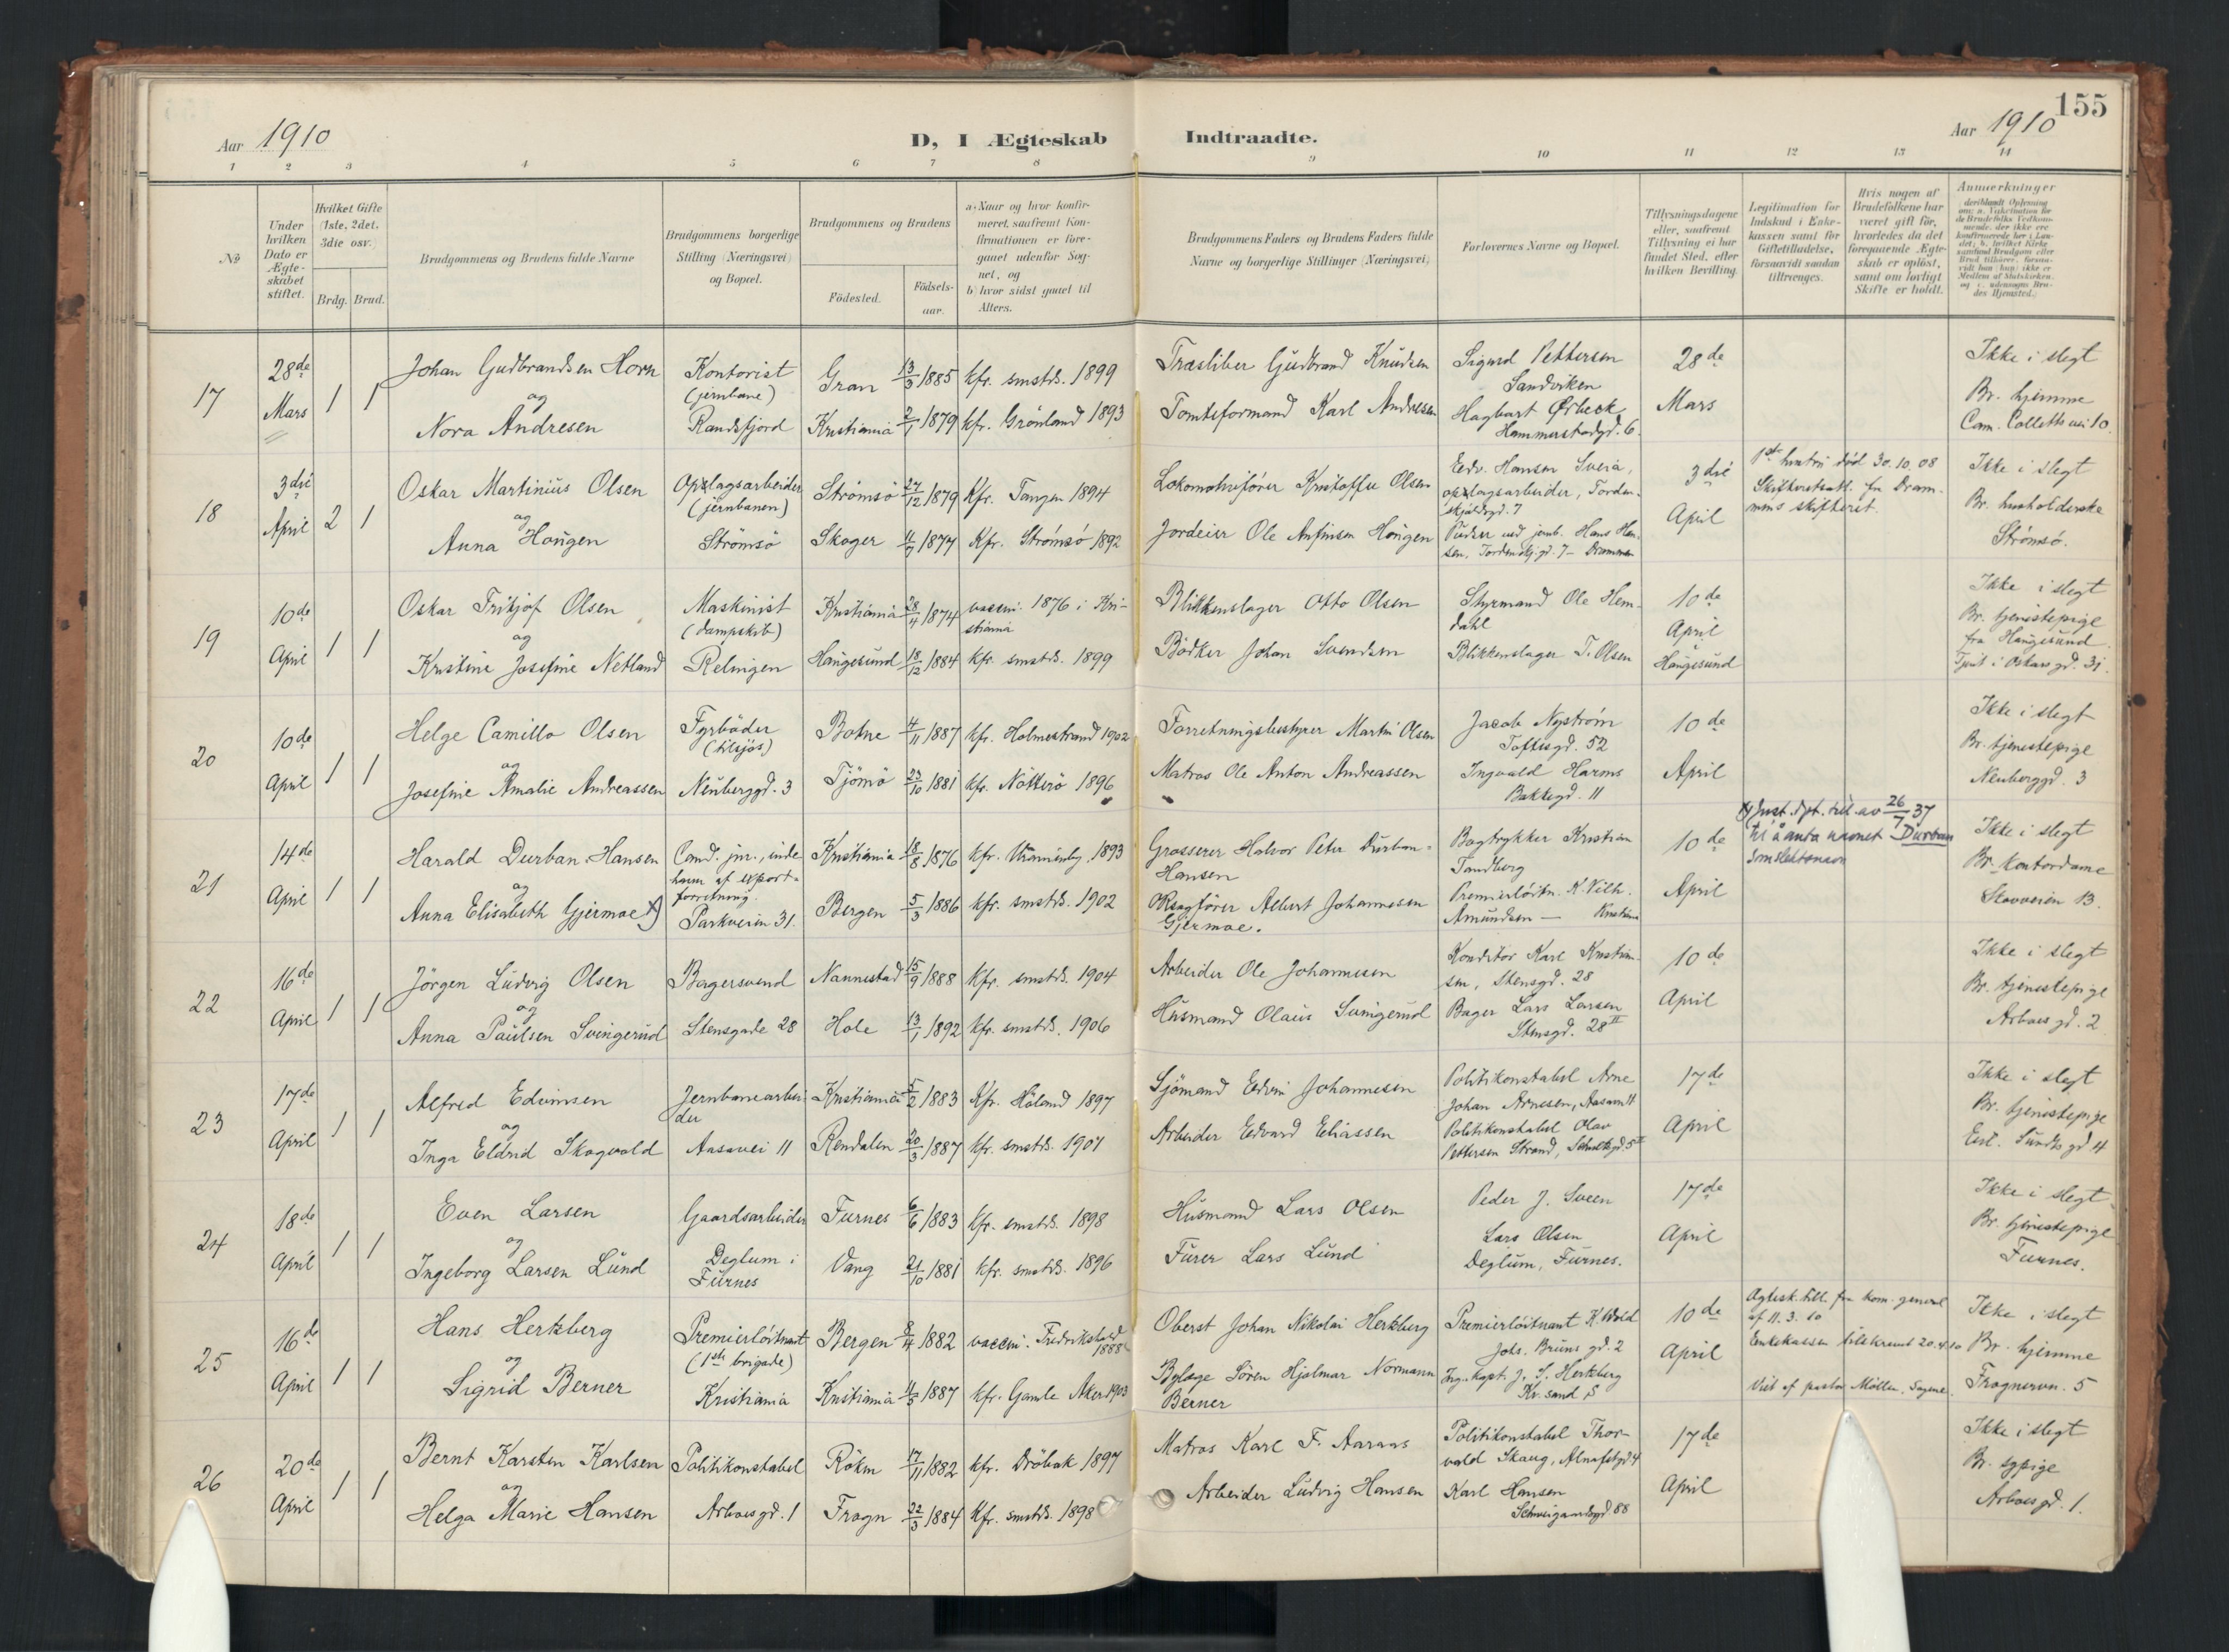 155
Aar 1910
D, I Ægteskab Indtraadte.
Aar 1910
1 2 3 4 5 6 7 8 9 10 11 12 13 14
No
Under hvilken Dato er Ægteskabet stiftet.
Hvilket Gifte (1ste, 2det, 3die osv.
Brdg. Brud.
Brudgommens og Brudens fulde Navne
Brudgommens borgerlige Stilling (Næringsvei) og Bopæl.
Brudgommens og Brudens
Födested.
Födsels-aar.
a) Naar og hvor konfir-
meret, saafremt Kon-
firmationen er fore-
gaaet udenfor Sog-
net, og
b) hvor sidst gaaet til
Alters.
Brudgommens Faders og Brudens Faders fulde
Navne og borgerlige Stillinger (Næringsvei)
Forlovernes Navne og Bopæl.
Tillysningsdagene
eller, saafremt
Tillysning ei har
fundet Sted, efter
hvilken Bevilling.
Legitimation for
Indskud i Enke-
kassen samt for
Giftetilladelse,
forsaavidt saadan
tiltrænges.
Hvis nogen af
Brudefolkene har
været gift før,
hvorledes da det
foregaaende Ægte-
skab er oplöst,
samt om lovligt
Skifte er holdt.
Anmerkninger
17
28de Mars
1 1
Johan Gudbrandsen Horn
og
Nora Andresen
Kontorist
(jernbane)
Randsfjord
Gran 13/3 1885 kfr. smstds. 1899
Kristiania 2/1 1879 kfr. Grönland 1893
Træsliber Gudbrand Knudsen
Tomteformand Karl Andresen
Sigurd Pettersen
Sandviken
Hagbart Ørbeck
Hammerstadgd. 6.
28de
Mars
Ikke i slegt
Br. hjemme
Cam. Colletts vei 10.
18
3die April
2 1
Oskar Martinius Olsen
og
Anna Haugen
Oplagsarbeider
(jernbanen)
Strömsö
Strömsö 27/12 1879 Kfr. Tangen 1894
Skoger 4/7 1877 Kfr. Strömsö 1892
Lokomotivfører Kristoffer Olsen
Jordeier Ole Anfinsen Haugen
Edv. Hansen Sveia,
oplagsarbeider, Torden-
skjoldsgd. 7
Pudser ved jernb. Hans Han-
sen, Tordenskj.gd. 7 - Drammen
3die
April
1ste hustru död 30.10.08
Skifteretsatt. fra Dram-
mens skifteret.
Ikke i slegt
Br. husholderske
Strömsö.
19
10de April
1 1
Oskar Fritjof Olsen
og
Kristine Josefine Netland
Maskinist
(dampskib)
Relingen
Kristiania 28/4 1874 vaccin. 1876 i Kri-
stiania
Haugesund 18/12 1884 kfr. smstds. 1899
Blikkenslager Otto Olsen
Bödker Johan Svendsen
Styrmand Ole Hem-
dahl
Blikkenslager T. Olsen
10de
April
Haugesund
Ikke i slegt
Br. tjenestepige
fra Haugesund.
Tjent i Oskars gd. 31.
20
10de April
1 1
Helge Camillo Olsen
og
Josefine Amalie Andreassen
Fyrböder
(tilsjös)
Neuberggd. 3
Botne 4/11 1887 kfr. Holmestrand 1902
Tjömö 23/10 1881 kfr. Nötterö 1896
Forretningsbestyrer Martin Olsen
Matros Ole Anton Andreassen
Jacob Nyström
Toftesgd. 52
Ingvald Harms
Bakkegd. 11
10de
April
Ikke i slegt
Br. tjenestepige
Neuberggd. 3
21
14de April
1 1
Harald Durban-Hansen
og
Anna Elisabeth Gjermoe x)
Cand. jur., inde-
haver af export-
forretning.
Parkveien 31.
Kristiania 18/8 1876 kfr. Uranienbg. 1893
Bergen 5/3 1886 kfr. smstds. 1902
Grosserer Halvor Peter Durban-
Hansen
Sagfører Albert Johannesen
Gjermoe.
Bogtrykker Kristian
Tandberg
Premierlöitn. K. Vilh.
Amundsen - Kristiania
10de
April
x) Just. dpt. till. av 26/7 37
til å anta navnet Durban
som slektsnavn
Ikke i slegt
Br. kontordame
Skovveien 13.
22
16de April
1 1
Jörgen Ludvig Olsen
og
Anna Paulsen Svingerud
Bagersvend
Stensgade 28
Nannestad 15/9 1888 kfr. smstds. 1904
Hole 13/1 1892 kfr. smstds. 1906
Arbeider Ole Johannesen
Husmand Olaus Svingerud
Konditor Karl Kristian-
sen, Stensgd. 28
Bager Lars Larsen
Stensgd. 28 II
10de
April
Ikke i slegt
Br. tjenestepige
Arboes gd. 2
23
17de April
1 1
Alfred Edvinsen
og
Inga Eldrid Skogvold
Jernbanearbei-
der
Aasavei 11
Kristiania 5/2 1883 Kfr. Höland 1897
Rendalen 20/3 1887 kfr. smstds. 1901
Sjömand Edvin Johannesen
Arbeider Edvard Eliassen
Politikonstabel Arne
Johan Arnesen,
Politikonstabel Olav
Pettersen Strand, Schultzgd. 5 II
17de
April
Ikke i slegt
Br. tjenestepige
Eil. Sundts gd. 4
24
18de April
1 1
Even Larsen
og
Ingeborg Larsen Lund
Gaardsarbeider
Deglum i
Furnes
Furnes 6/6 1883 kfr. smstds. 1898
Vang 21/10 1881 kfr. smstds. 1896
Husmand Lars Olsen
Furer Lars Lund
Peder J. Sveen
Lars Olsen
Deglum, Furnes.
17de
April
Ikke i slegt
Br. tjenestepige
Furnes.
25
16de April
1 1
Hans Hertzberg
og
Sigrid Berner
Premierlöitnant
(1ste brigade)
Kristiania
Bergen 8/4 1882 vaccin. Fredrikshald
1888
Kristiania 4/5 1887 kfr. Gamle Aker 1903
Oberst Johan Nikolai Hertzberg
Byfoge Sören Hjalmar Normann
Berner
Premierlöitnant K. Wold
Johs. Bruns gd. 2
Ing. kapt. J. S. Hertzberg
Kr.sand S
10de
April
Ægtesk.till. fra kom. general
af 11.3.10
Enkekassen tilskrevet 20.4.10
Viet af pastor Möller, Sagene
Ikke i slegt
Br. hjemme
Frognervn. 5
26
20de April
1 1
Bernt Karsten Karlsen
og
Helga Marie Hansen
Politikonstabel
Arboesgd. 1
Röken 17/11 1882 kfr. Dröbak 1897
Frogn 22/3 1884 Kfr. smstds. 1898
Matros Karl F. Aaraas
Arbeider Ludvig Hansen
Politikonstabel Thor-
vald Skaug, Alnafetgd 4
Karl Hansen
Schweigaardsgd 88
17de
April
Ikke i slegt
Br. sypige
Arboesgd. 1.